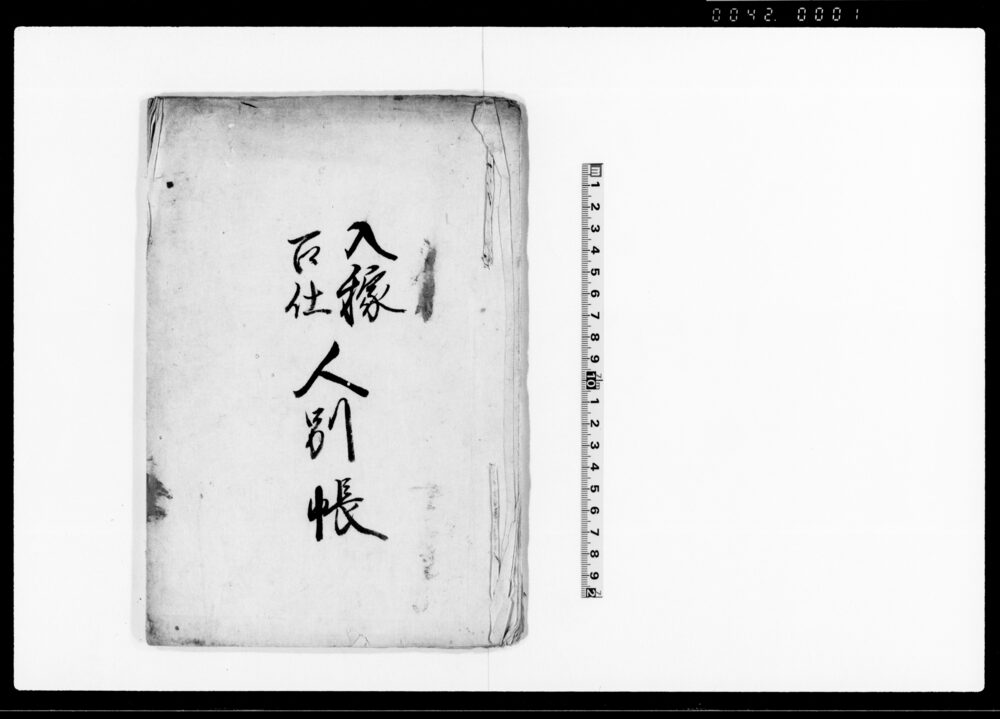 0042. 0001
入稼
召仕
人別帳
1 2 3 4 5 6 7 8 9 10 1 2 3 4 5 6 7 8 9 2